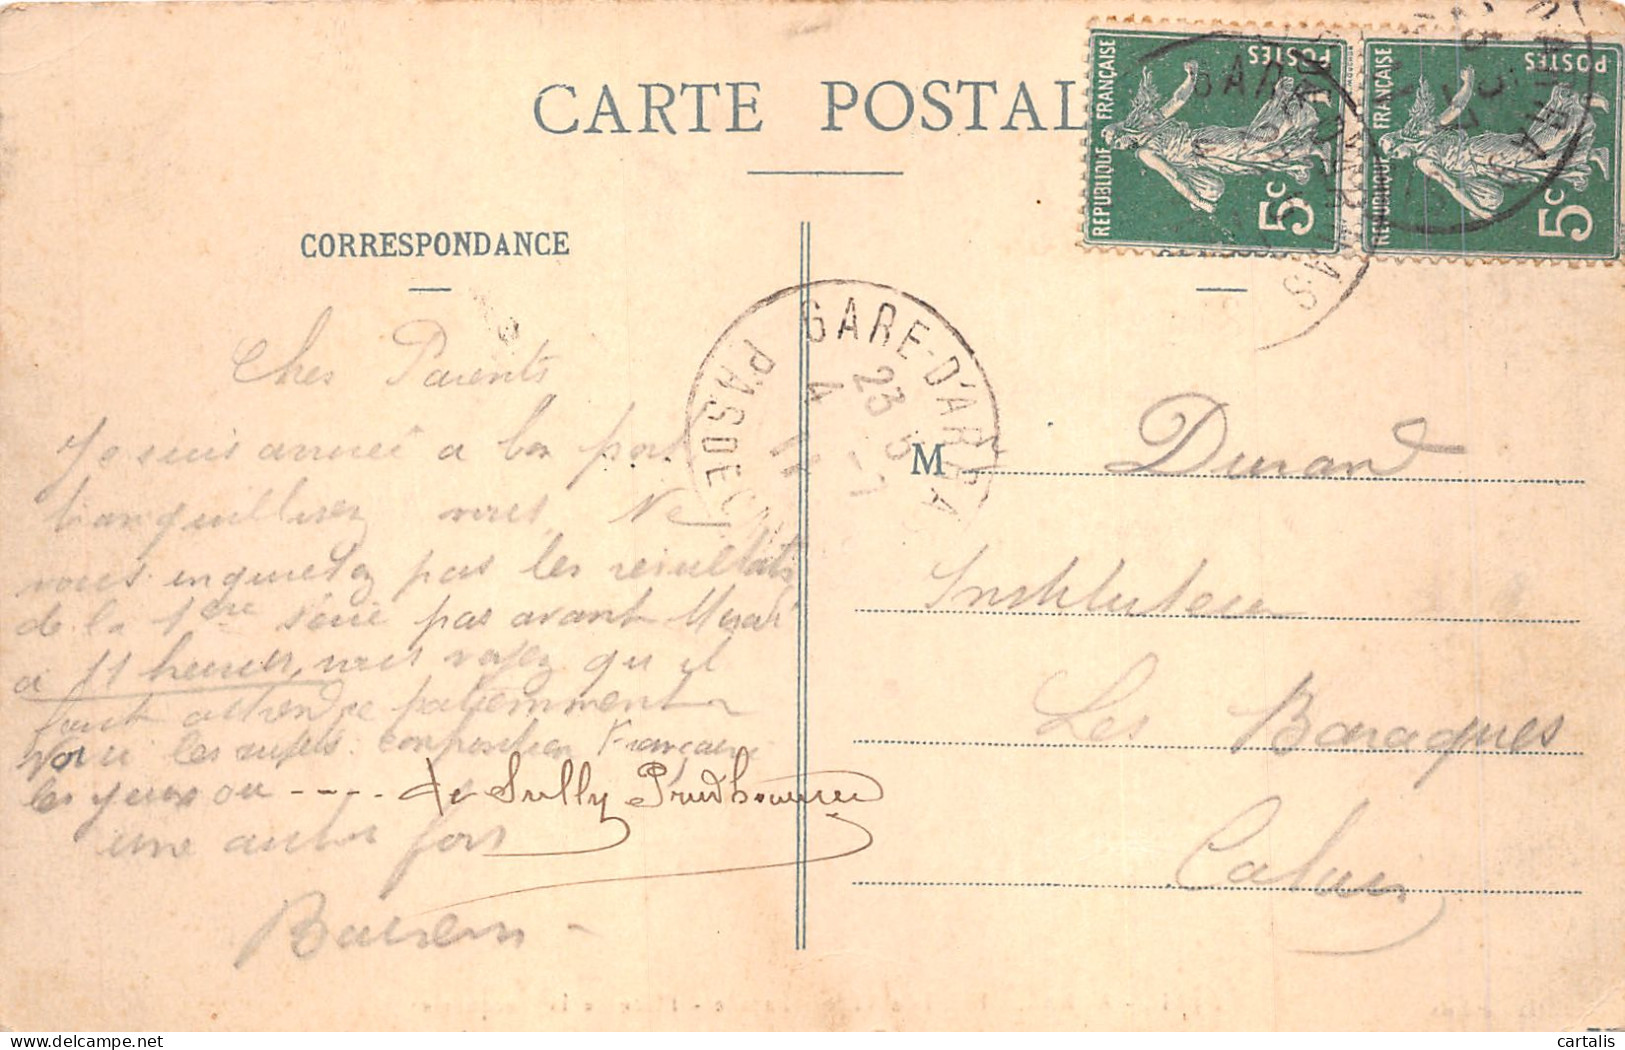 CARTE POSTAL
CORRESPONDANCE
Chers Parents
Je suis arrivé à bon port
tranquillisez vous. Ne
vous inquietez pas les résultats
de la 1ère série pas avant
à 11 heures, vous voyez qu il
faut attendre patiemment
Voici les sujets. composition Française
les yeux ou ---- de Sully Prudhomme
une autre fois
GARE-D'ARRAS
PAS DE C
23
4
REPUBLIQUE FRANÇAISE
POSTES
5c
REPUBLIQUE FRANÇAISE
POSTES
5c
M Durand
Instituteur
Les Baraques
Calais
cartalis
delcampe.net